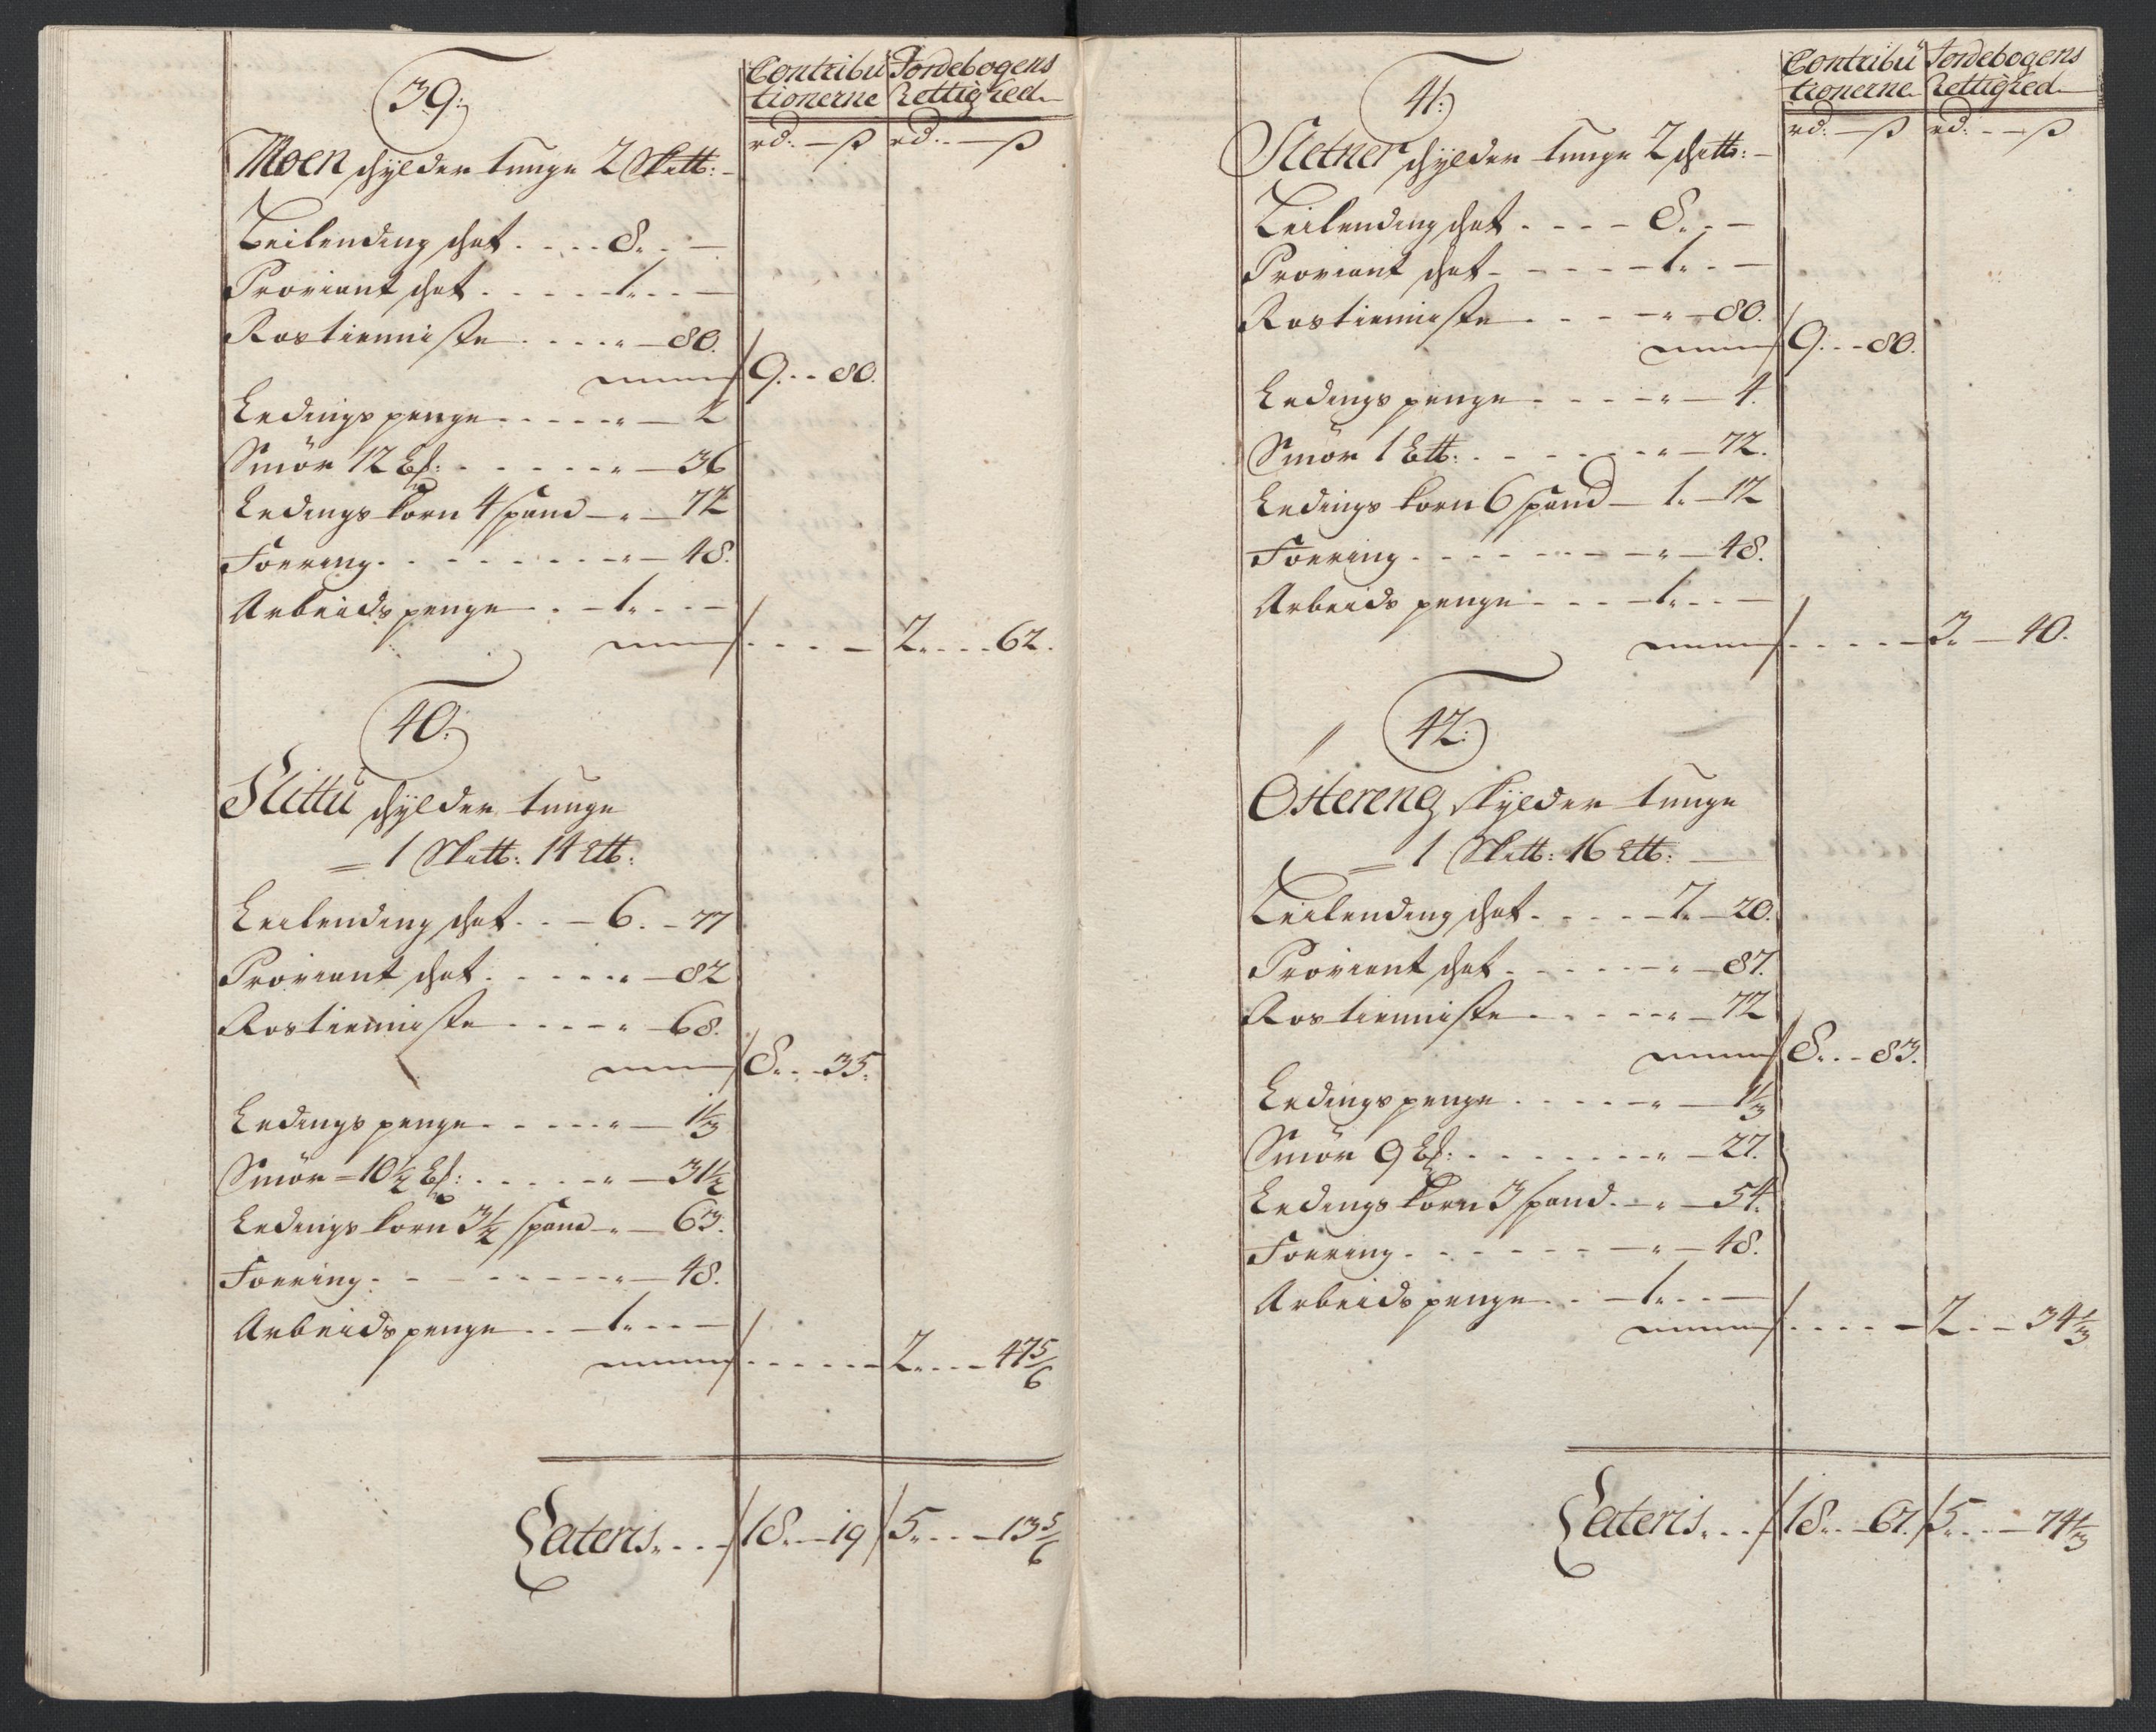 Contribu Jordebogens
tionerne Rettighed
39:
rd: — ß rd: — ß
Moen schylder tunge 2 Skett:
Leilending schat . . . . 8. . —
Proviant schat . . . . . 1. . . —
Rostienniste . . . . . " — 80.
9. . . 80.
Ledings penge . . . . . " — 2
Smör 12 . . . . . . . " — 36
Ledings korn 4 spand — " — 72
Foering . . . . . . . . . " — 48.
Arbeids penge . . — 1. . . . —
. . . . — 2. . . . 62.
40:
Slittu schylder tunge
= 1 Skett: 14
Leilending schat . . — 6. . 77
Proviant schat . . . . . " — 82
Rostienniste . . . . . " — 68.
8. . . 35.
Ledings penge . . . . . " — 1⅓
Smör — 10½ . . . . . " — 31½
Ledings korn 3½ spand — " — 63.
Foering . . . . . . . . . " — 48.
Arbeids penge . . — 1. . . . —
. . . . . . — 2. . . . 47⅚
Lateris. . . . 18. — 19 5. . . . 13⅚
Contribu Jordebogens
tionerne Rettighed
41:
rd: — ß rd: — ß
Sletner schylder tunge 2 schett: —
Leilending schat . . . . — 8. . —
Proviant schat . . . . . — 1. . . —
Rostienniste . . . . — " — 80.
9. . . 80.
Ledings penge . . . . — " — 4.
Smör 1 . . . . . . . . " — 72.
Ledings korn 6 spand — 1. — 12
Foering . . . . . . . . — " — 48.
Arbeids penge . . . — 1. . . —
. . . . . — 3. — 40.
42:
Östereng skylder tunge
= 1 Skett: 16
Leilending schat . . . . . — 7. — 20.
Proviant schat . . . . . . " — 87.
Rostienniste . . . . . . " — 72
8. . . 83.
Ledings penge . . . . . — " — 1⅓
Smör 9 . . . . . . . . " — 27.
Ledings korn 3 spand. — " — 54.
Foering . . . . . . . — " — 48.
Arbeids penge . . . — 1. . . —
. . . . . — 2. . — 34⅓
Lateris. . . . 18. . — 67. 5. . . . — 74⅓